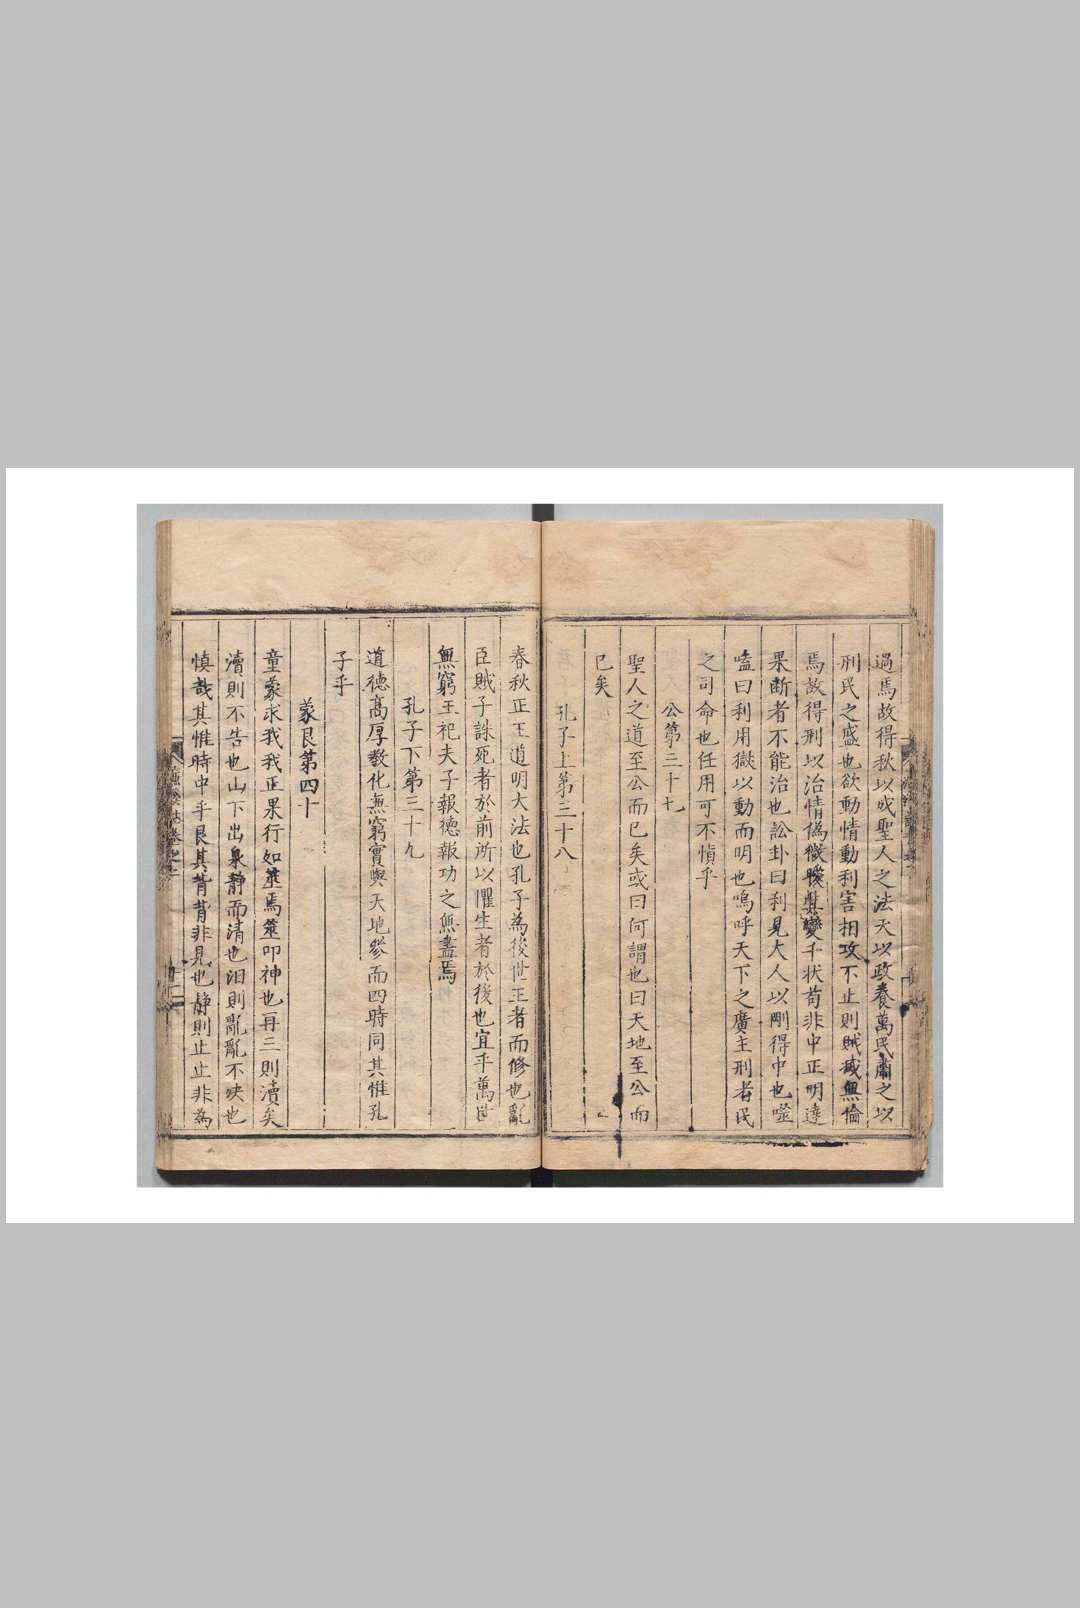 過焉故得秋以成聖人之法天以政養萬民肅之以
刑民之盛也欲動情動利害相攻不止則賊滅無倫
焉故得刑以治情僞微曖其變千状苟非中正明達
果斷者不能治也訟卦曰利見大人以剛得中也噬
嗑曰利用獄以動而明也嗚呼天下之廣主刑者民
之司命也任用可不愼乎
公第三十七
聖人之道至公而已矣或曰何謂也曰天地至公而
已矣
孔子上第三十八
春秋正王道明大法也孔子為後世王者而修也亂
臣賊子誅死者於前所以懼生者於後也宜乎萬世
無窮王祀夫子報德報功之無盡焉
孔子下第三十九
道德高厚教化無窮實與天地參而四時同其惟孔
子乎
蒙艮第四十
童蒙求我我正果行如筮焉筮叩神也再三則瀆矣
瀆則不告也山下出泉靜而清也汨則亂亂不決也
慎哉其惟時中乎艮其背背非見也静則止止非為